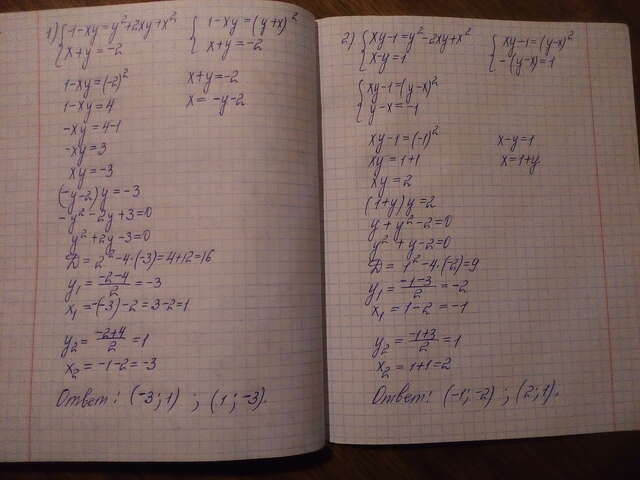 1) { 1-xy=y²+2xy+x²   { 1-xy=(y+x)²
x+y=-2   x+y=-2
1-xy=(-2)²   x+y=-2
1-xy=4   x=-y-2
-xy=4-1
-xy=3
xy=-3
(-y-2)y=-3
-y²-2y+3=0
y²+2y-3=0
D=2²-4·(-3)=4+12=16
y₁=(-2-4)/2=-3
x₁=-(-3)-2=3-2=1
y₂=(-2+4)/2=1
x₂=-1-2=-3
Ответ: (-3;1) ; (1;-3).
2) { xy-1=y²-2xy+x²   { xy-1=(y-x)²
x-y=1   -(y-x)=1
{ xy-1=(y-x)²
y-x=-1
xy-1=(-1)²   x-y=1
xy=1+1   x=1+y
xy=2
(1+y)y=2
y+y²-2=0
y²+y-2=0
D=1²-4·(-2)=9
y₁=(-1-3)/2=-2
x₁=1-2=-1
y₂=(-1+3)/2=1
x₂=1+1=2
Ответ: (-1;-2) ; (2;1).